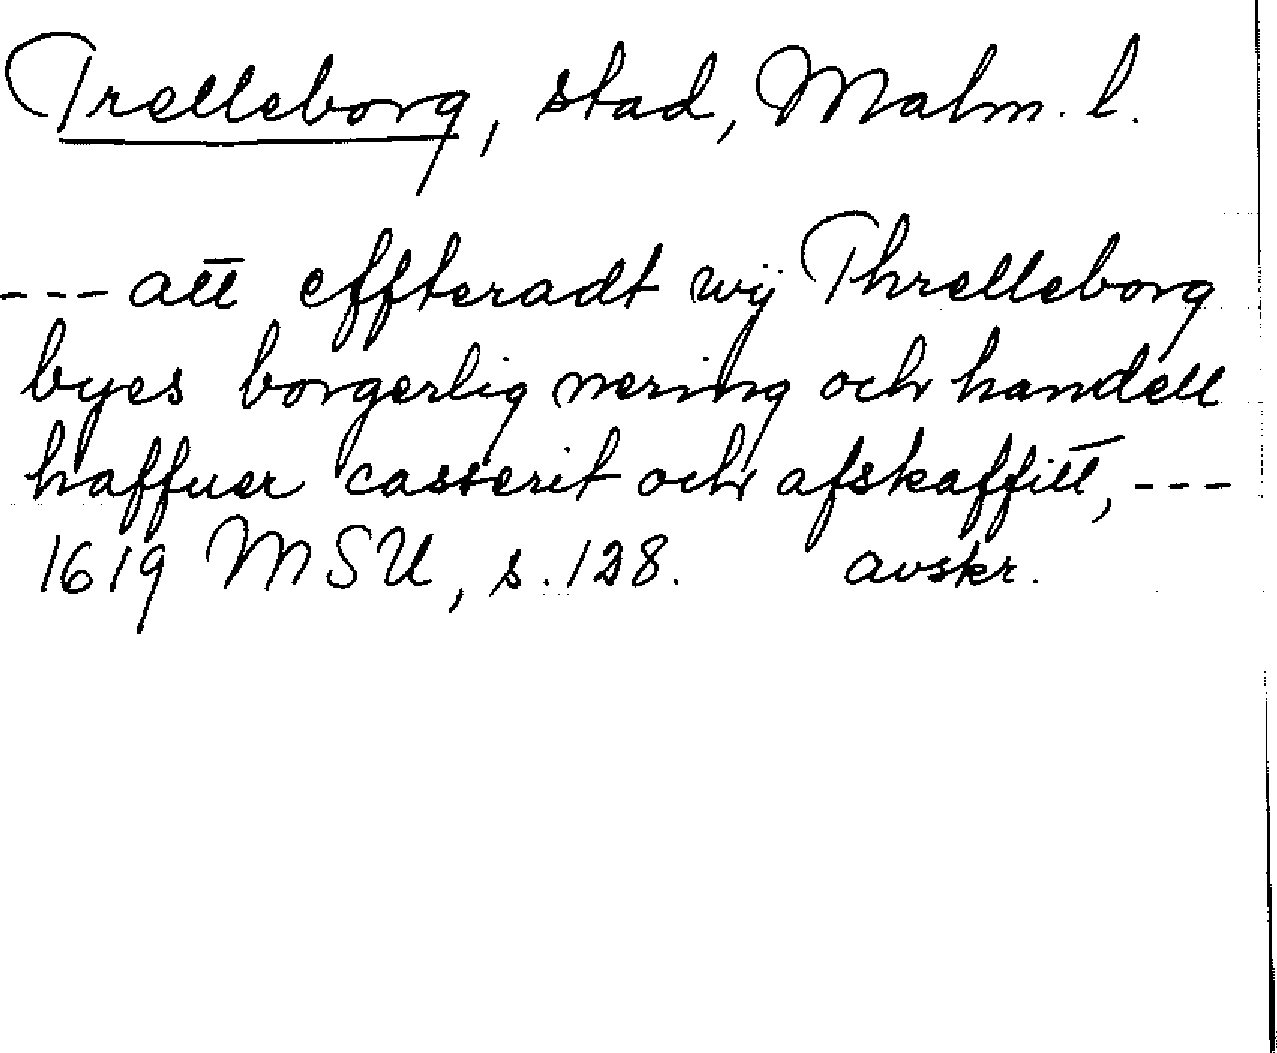 Trelleborg, stad, Malm. l.
--- att effteradt wÿ Threlleborg
byes borgerlig nering och handell
haffuer casserit och afskaffitt, ---
1619 MSU, s. 128. avskr.